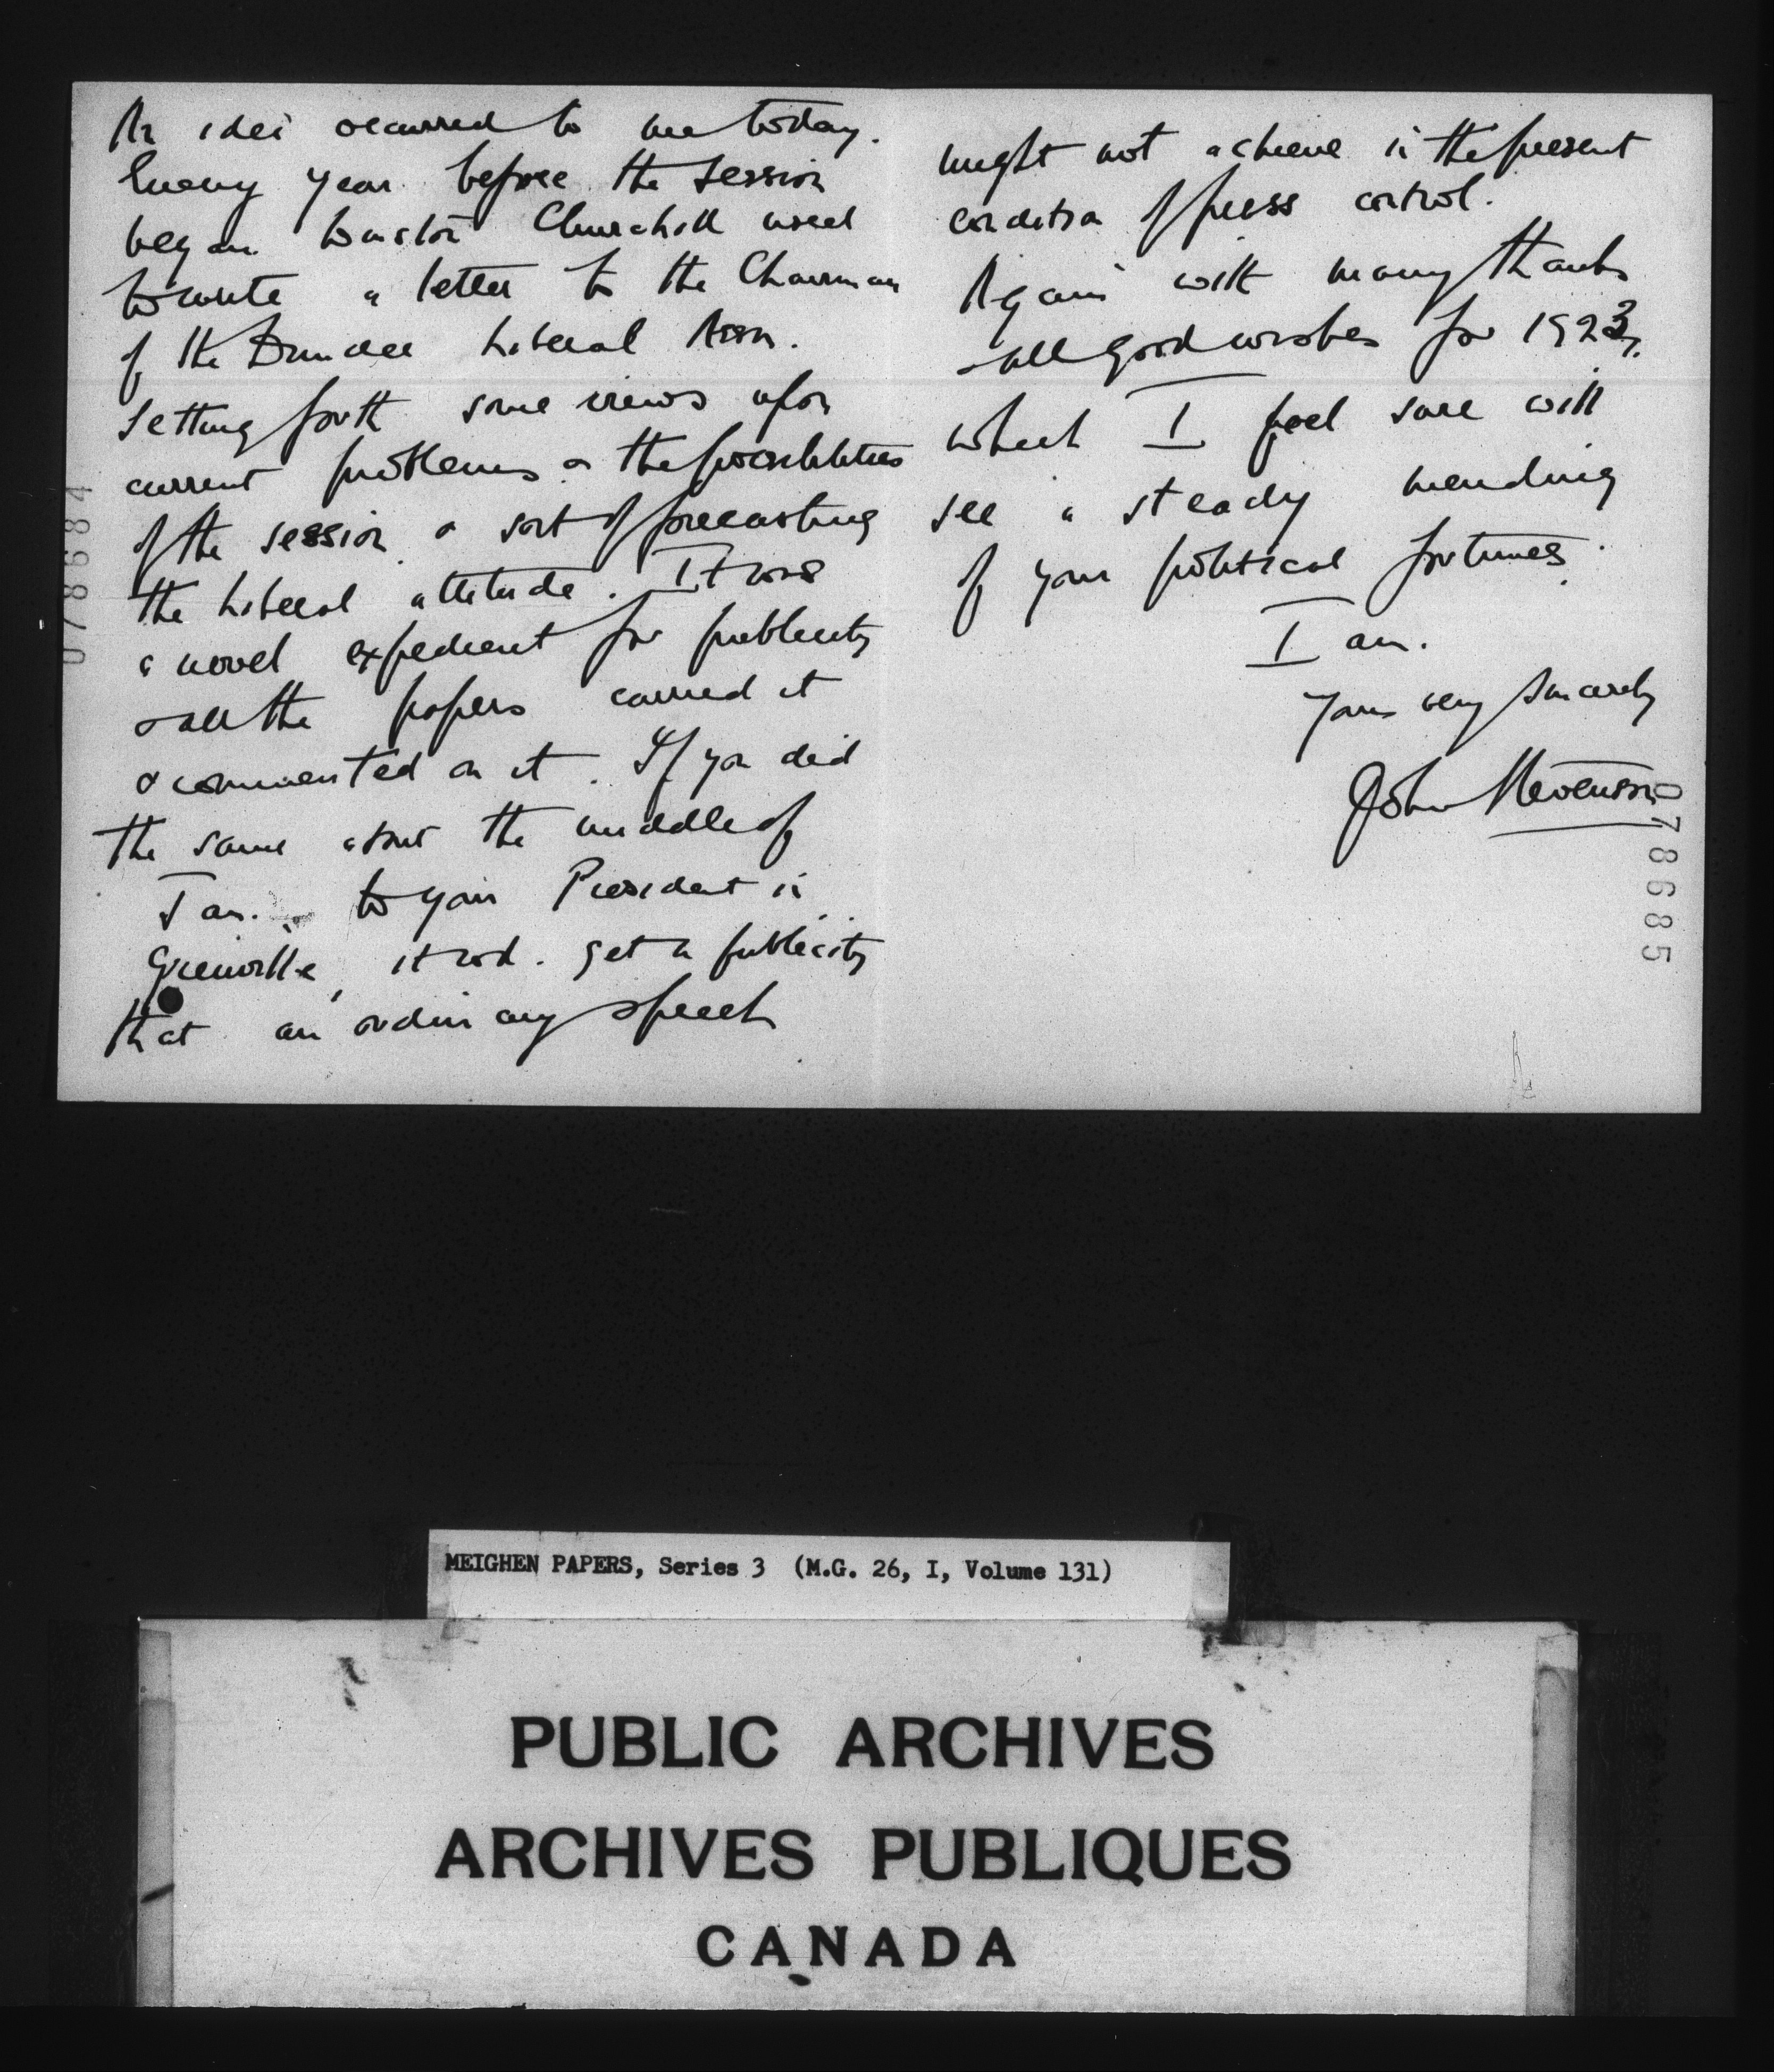 An idea occurred to me today.
Every year before the session
began Winston Churchill used
to write a letter to the Chairman
of the Dundee Liberal Assn.
setting forth some views upon
current problems & the possibilities
of the session & sort of forecasting
the Liberal attitude. It was
a novel expedient for publicity
& all the papers carried it
& commented on it. If you did
the same about the middle of
Jan. to your President in
Grenville, it wd. get a publicity
that an ordinary speech
078684
might not achieve in the present
condition of press control.
Again with many thanks
& all good wishes for 1923,
which I feel sure will
see a steady mending
of your political fortunes.
I am.
Yours very sincerely
John Stevenson
078685
MEIGHEN PAPERS, Series 3 (M.G. 26, I, Volume 131)
PUBLIC ARCHIVES
ARCHIVES PUBLIQUES
CANADA